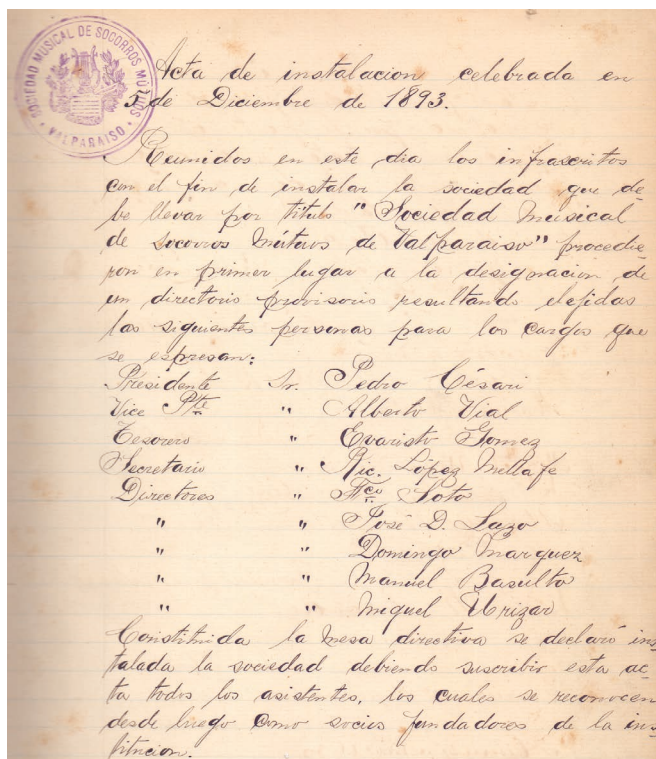 SOCIEDAD MUSICAL DE SOCORROS MÚTUOS
VALPARAISO
Acta de instalacion celebrada en
5 de Diciembre de 1893.
Reunidos en este dia los infrascritos
con el fin de instalar la sociedad que de-
be llevar por título "Sociedad Musical
de Socorros Mútuos de Valparaiso" procedie-
ron en primer lugar a la designacion de
un directorio provisorio resultando elejidas
las siguientes personas para los cargos que
se espresan:
Presidente Sr. Pedro Césari
Vice Pte " Alberto Vial
Tesorero " Evaristo Gomez
Secretario " Ric. López Mellafe
Directores " Fco Soto
" " José D. Lazo
" " Domingo Marquez
" " Manuel Basulto
" " Miguel Urizar
Constituida la mesa directiva se declaró ins-
talada la sociedad debiendo suscribir esta ac-
ta todos los asistentes, los cuales se reconocen
desde luego como socios fundadores de la ins-
titucion.